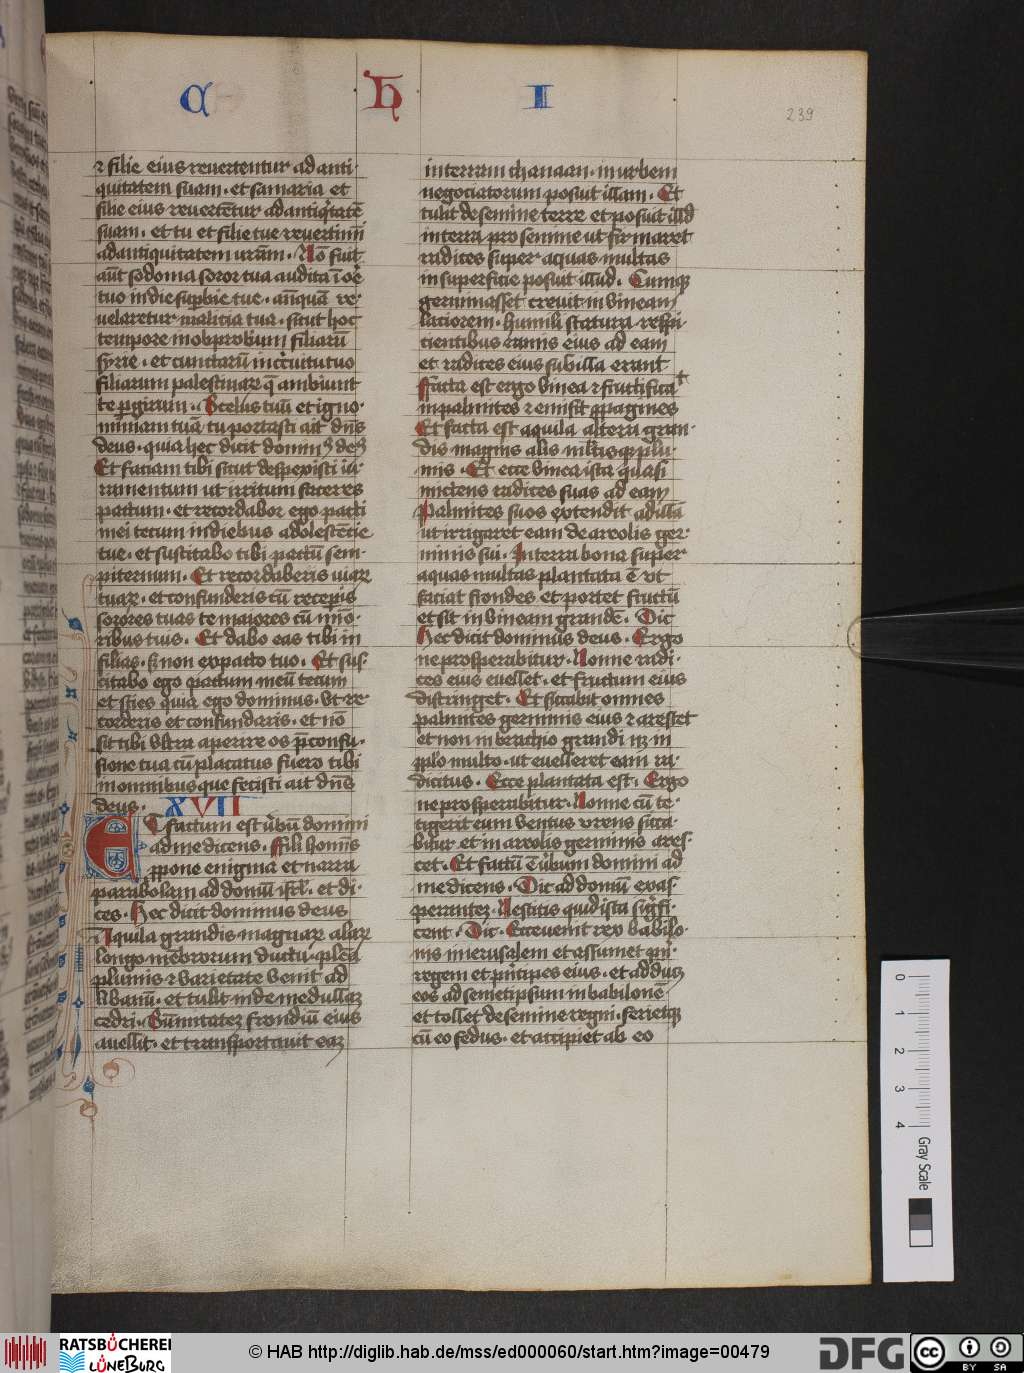 C H I
239
⁊ filie eius reuertentur ad anti·
quitatem suam · et samaria et
filie eius reuertētur ad antiq̄tatē
suam · et tu et filie tue reuertimī
ad antiquitatem urām · Nō fuit
aūt sodoma soror tua audita ī oē
tuo in die supbie tue · anq̄uā re·
uelaretur malicia tua · sicut hoc
tempore in obprobrium filiarū
syrie · et cunctarū in circuitu tuo
filiarum palestinarꝝ q̄ ambiunt
te p girum · Scelus tuū et igno·
miniam tuā tu portasti ait dn̄s
deus · quia hec dicit dominꝰ deꝰ
Et faciam tibi sicut despexisti iu·
ramentum ut irritum faceres
pactum · et recordabor ego pacti
mei tecum in diebus adolescētie
tue · et suscitabo tibi pactū sem·
piternum · Et recordaberis uiarꝝ
tuarꝝ · et confunderis cū receperis
sorores tuas te maiores cū mino·
ribus tuis · Et dabo eas tibi in
filias · s̄ non ex pacto tuo · Et sus·
citabo ego pactum meū tecum
et scies quia ego dominus · Vt re·
corderis et confundaris · et nō
sit tibi vltra aperire os p̄ confu·
sione tua cū placatus fuero tibi
in omnibus que fecisti ait dn̄s
deus · XVII
Et factum est ūbū domini
ad me dicens · Fili hominis
ppone enigma et narra
parabolam ad domū isrl̄ · et di·
ces · Hec dicit dominus deus
Aquila grandis magnarꝝ alarꝝ
longo mēbrorum ductu · plena
plumis ⁊ varietate venit ad
libanū · et tulit inde medullaꝫ
cedri · Sūmitateꝫ frondiū eius
auellit · et transportauit eaꝫ
in terram chanaan · in urbem
negociatorum posuit illam · Et
tulit de semine terre et posuit illd̄
in terra pro semine ut firmaret
radices super aquas multas
in superficie posuit illud · Cumqꝫ
germinasset creuit in vineam
laciorem · humili statura respi·
cientibus ramis eius ad eam
et radices eius sub illa erant
Facta est ergo vinea ⁊ fructificat
in palmites ⁊ emisit ppagines
Et facta est aquila altera gran·
dis magnis alis mltisqꝫ plu·
mis · Et ecce vinea ista quasi
mittens radices suas ad eam
Palmites suos extendit ad illā
ut irrigaret eam de areolis ger·
minis sui · In terra bona super
aquas multas plantata ē vt
faciat frondes et portet fructū
et sit in vineam grande · Dic
Hec dicit dominus deus · Ergo
ne prosperabitur · Nonne radi·
ces eius euellet · et fructum eius
distringet · Et siccabit omnes
palmites germinis eius ⁊ arescet
et non in brachio grandi neqꝫ in
pplo multo · ut euelleret eam ra·
dicitus · Ecce plantata est · Ergo
ne prosperabitur · Nonne cū te·
tigerit eum ventus vrens sicca·
bitur · et in areolis germinis ares·
cet · Et factū ē ūbum domini ad
me dicens · Dic ad domū exas·
perantez · Nescitis quid ista sigfi·
cent · Dic · Ecce venit rex babilo·
nis in ierusalem et assumet
regem et principes eius · et adducꝫ
eos ad semetipsum in babilonē
et tollet de semine regni · ferietqꝫ
cū eo fedus · et accipiet ab eo
0 1 2 3 4
Gray Scale
RATSBÜCHEREI
LÜNEBURG
© HAB http://diglib.hab.de/mss/ed000060/start.htm?image=00479
DFG
cc BY SA